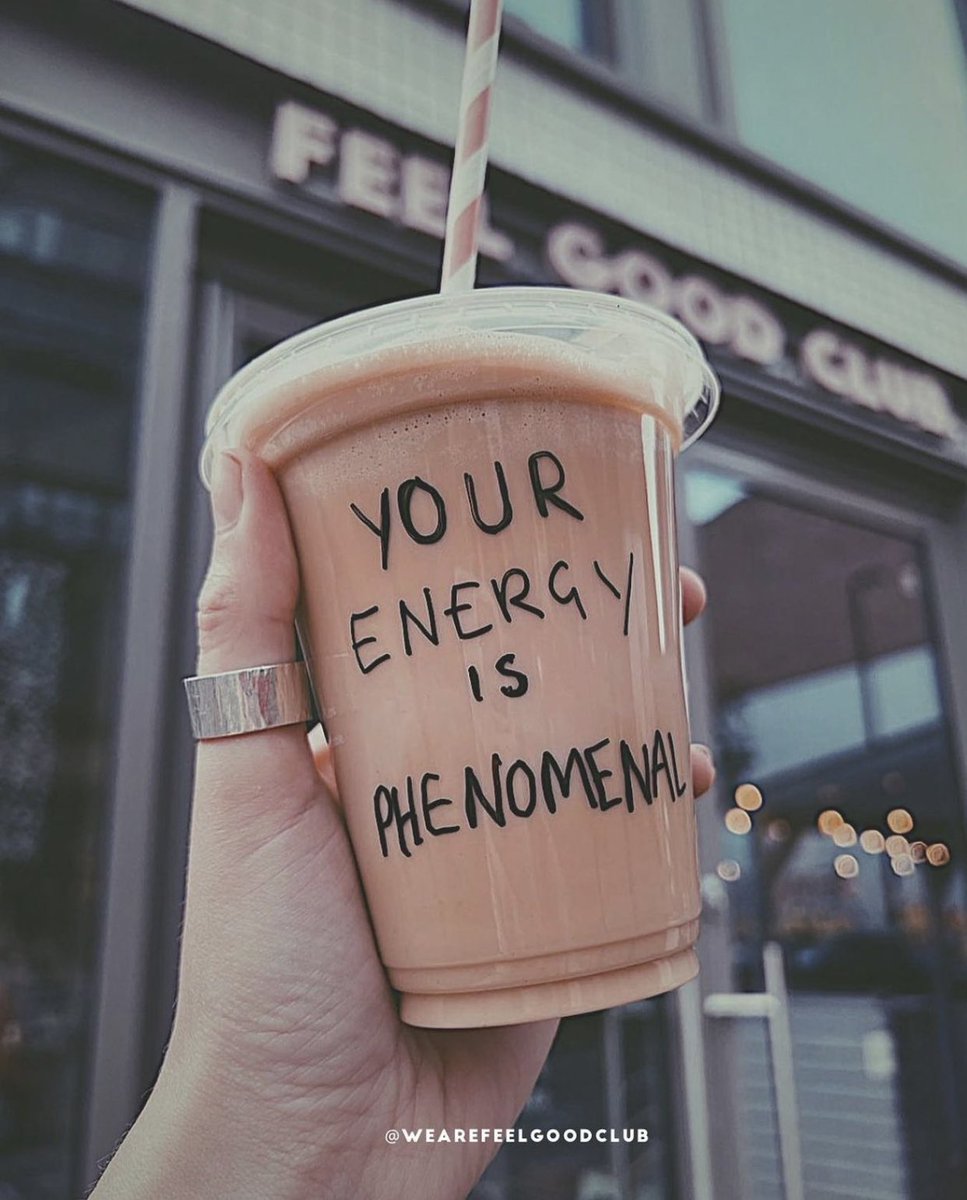 FEEL GOOD CLUB
YOUR
ENERGY
IS
PHENOMENAL
@WEAREFEELGOODCLUB